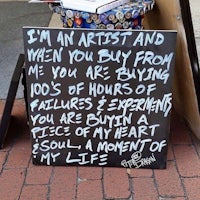 I'M AN ARTIST AND
WHEN YOU BUY FROM
ME YOU ARE BUYING
100'S OF HOURS OF
FAILURES & EXPERIMENTS
YOU ARE BUYIN A
PIECE OF MY HEART
& SOUL, A MOMENT OF
MY LIFE